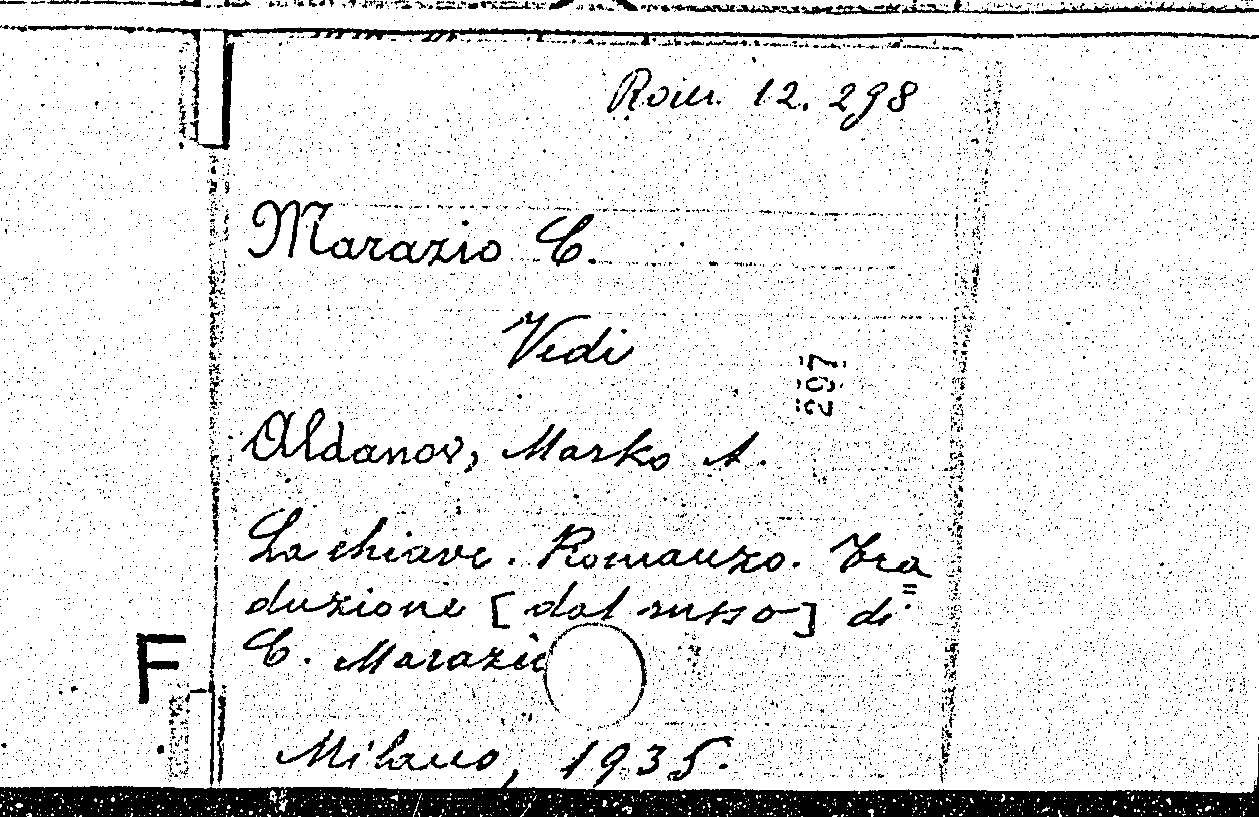 Rom. 12. 298
Marazio C.
Vedi
297
Aldanov, Marko A.
La chiave. Romanzo. Tra=
duzione [dal russo] di
C. Marazio
F
Milano, 1935.